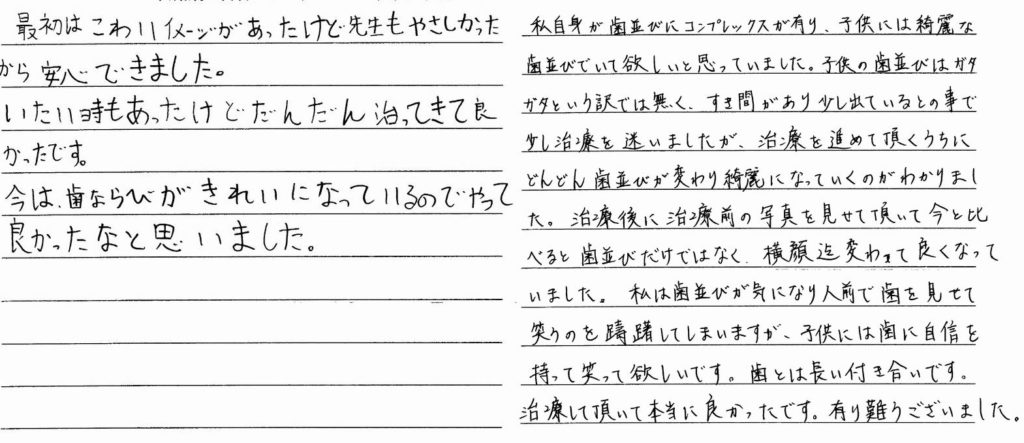 最初はこわいイメージがあったけど先生もやさしかった
から安心できました。
いたい時もあったけどだんだん治ってきて良
かったです。
今は、歯ならびがきれいになっているのでやって
良かったなと思いました。
私自身が歯並びにコンプレックスが有り、子供には綺麗な
歯並びでいて欲しいと思っていました。子供の歯並びはガタ
ガタという訳では無く、すき間があり少し出ているとの事で
少し治療を迷いましたが、治療を進めて頂くうちに
どんどん歯並びが変わり綺麗になっていくのがわかりまし
た。治療後に治療前の写真を見せて頂いて今と比
べると歯並びだけではなく、横顔迄変わって良くなって
いました。私は歯並びが気になり人前で歯を見せて
笑うのを躊躇してしまいますが、子供には歯に自信を
持って笑って欲しいです。歯とは長い付き合いです。
治療して頂いて本当に良かったです。有り難うございました。